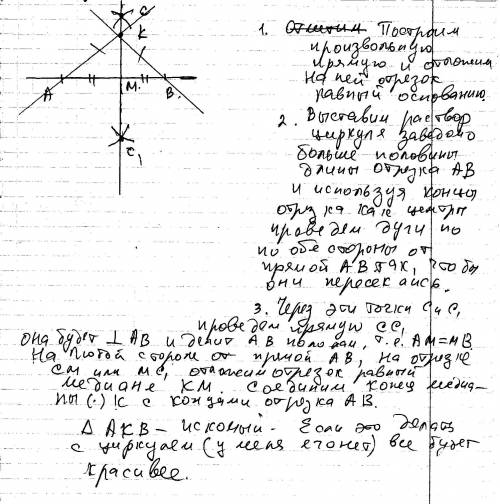 C
K
A
M.
B.
C₁
1. Отметим Построим
произвольную
прямую и отложим
на ней отрезок
равный основанию.
2. Выставим раствор
циркуля заведомо
больше половины
длины отрезка AB
и используя концы
отрезка как центры
проведем дуги по
по обе стороны от
прямой AB так, что бы
они пересекались.
3. Через эти точки C и C₁
проведем прямую CC₁
она будет ⊥ AB и делит AB пополам, т.е. AM=MB
На любой стороне от прямой AB, на отрезке
CM или MC₁ отложим отрезок равный
медиане KM. Соединим конец медиа-
ны (·) K с концами отрезка AB.
Δ AKB – искомый. Если это делать
с циркулем (у меня его нет) все будет
красивее.